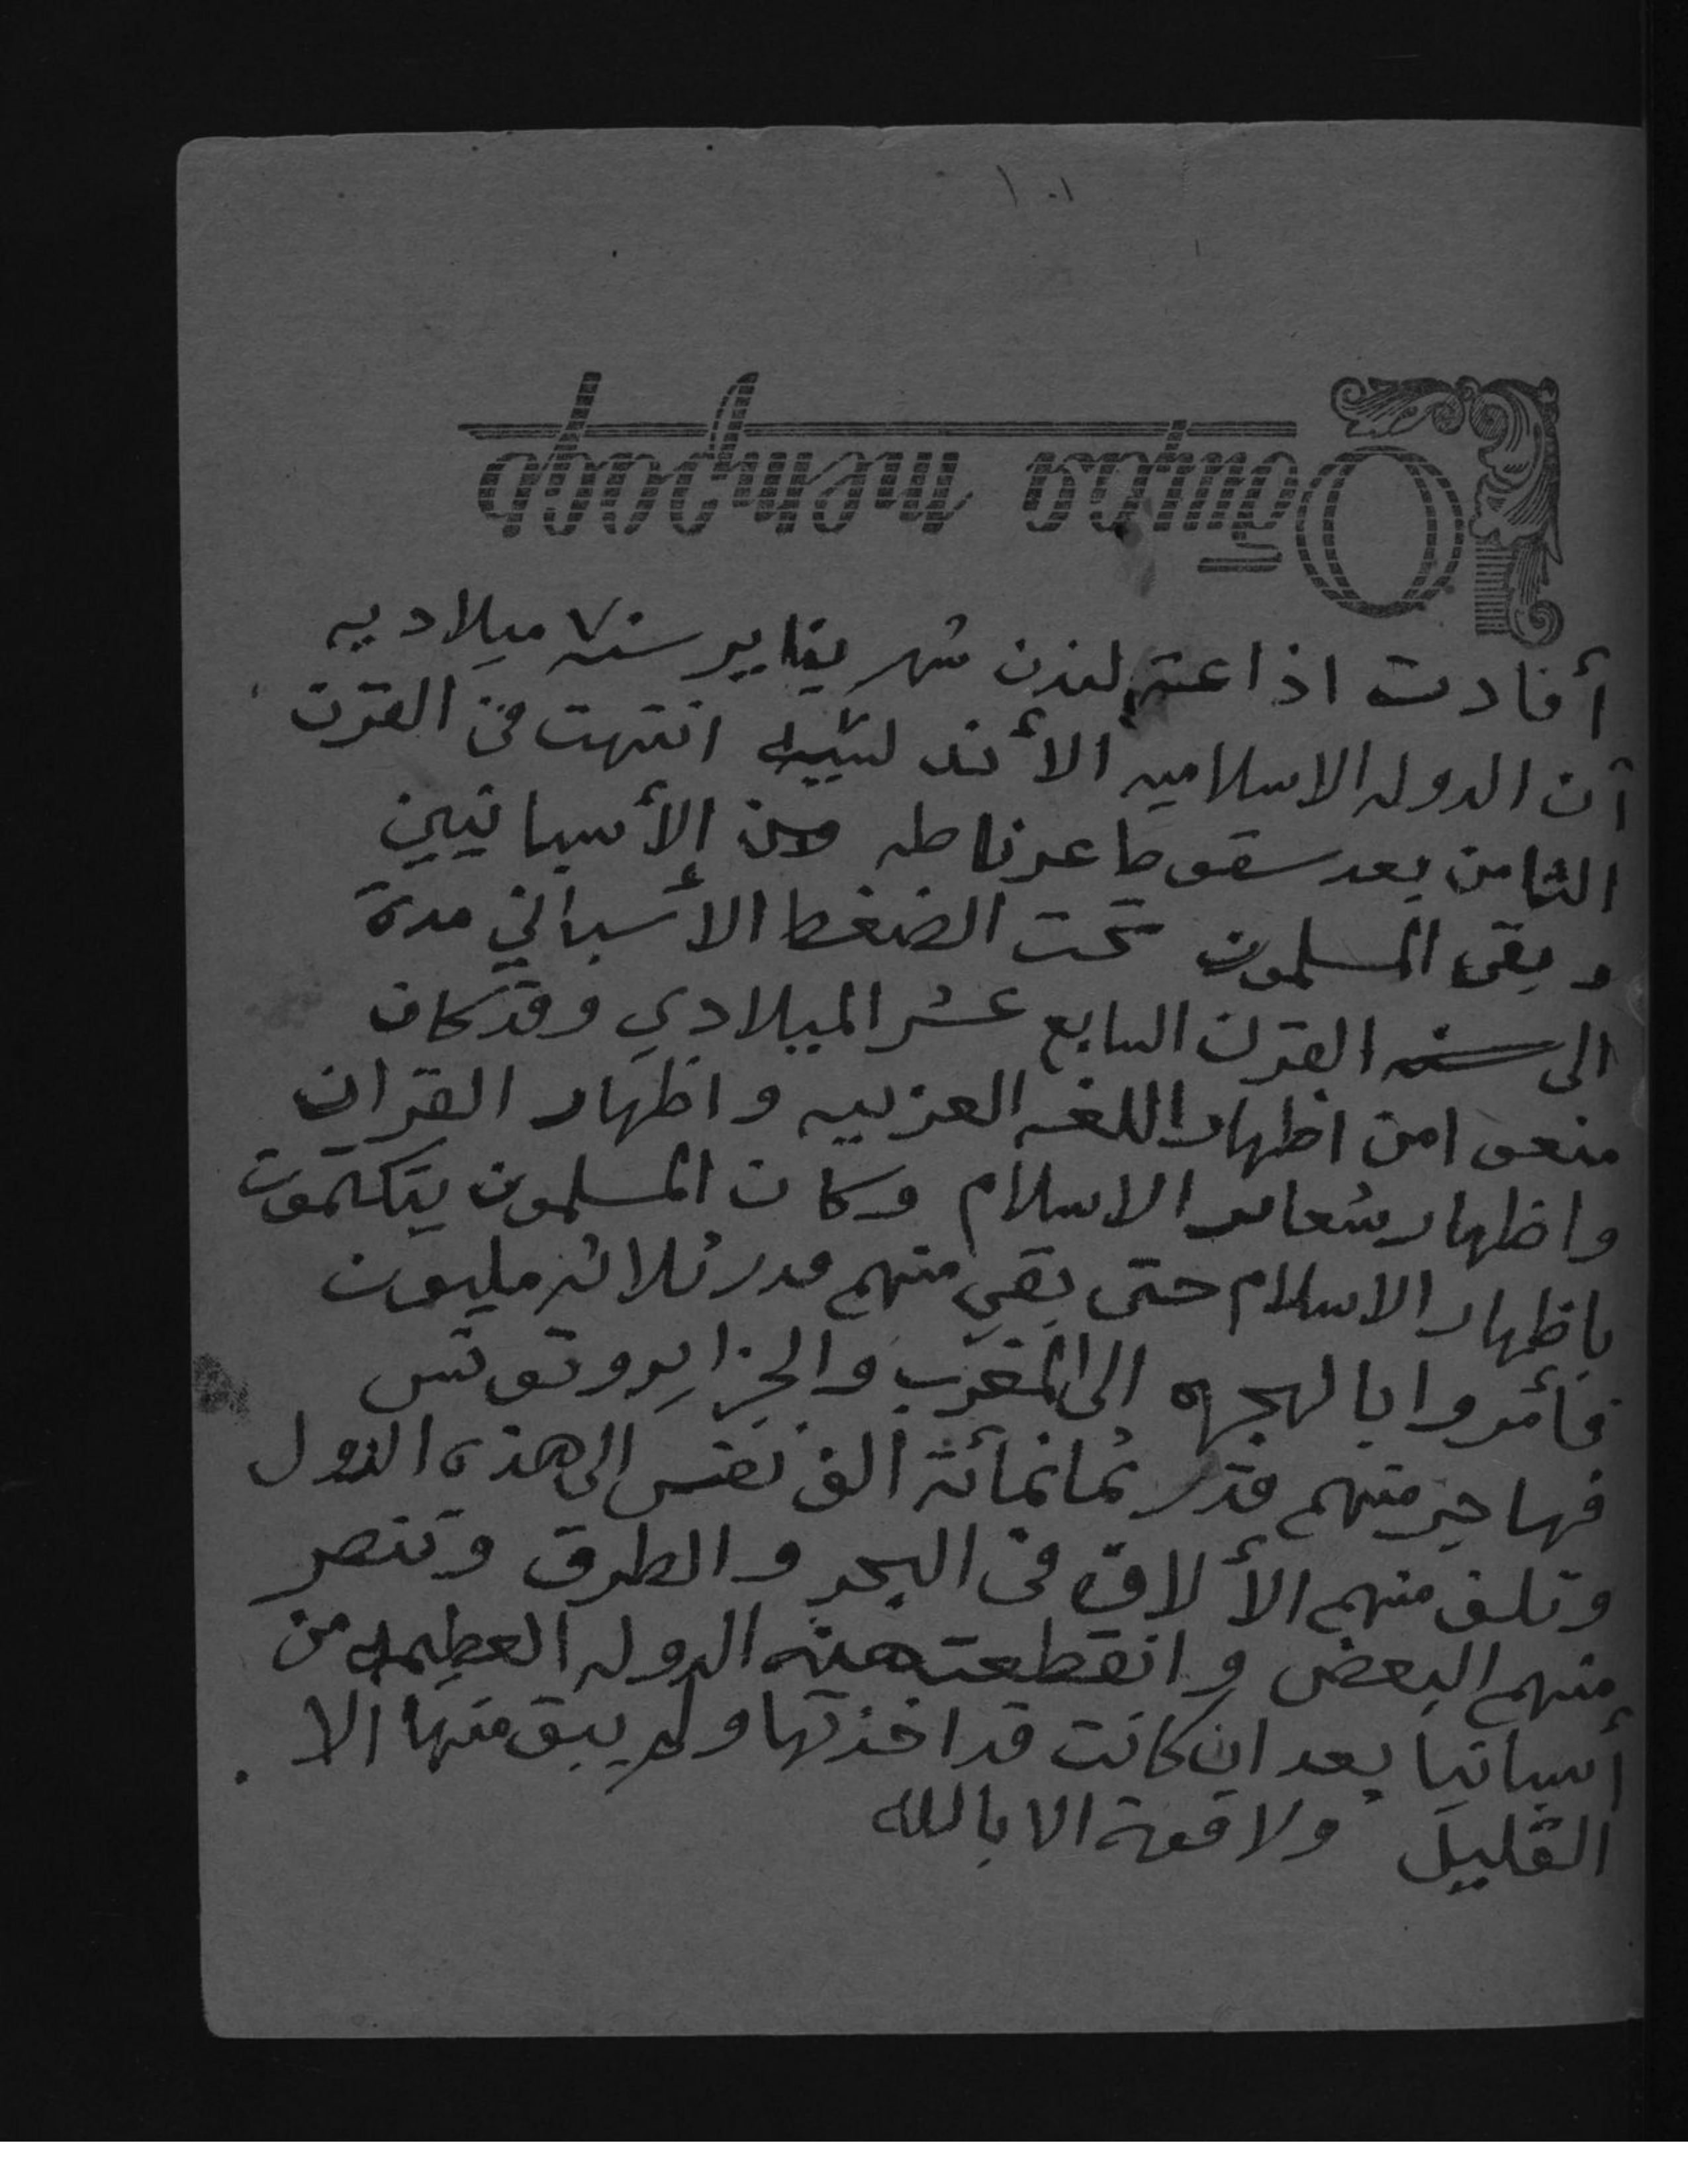 ١٠١
أفادت اذاعة لندن شهر يناير سنة ٧ ميلاديه
أن الدوله الاسلاميه الأندلسيه انتهت في القرن
الثامن بعد سقوط غرناطه من الأسبانيين
وبقى المسلمون تحت الضغط الاسباني مدة
الى القرن السابع عشر الميلادي وقد كان
منعوا من اظهار اللغه العربيه واظهار القران
واظهار شعاير الاسلام وكان المسلمون يتكتمون
باظهار الاسلام حتى بقي منهم قدر ثلاثه مليون
فأمروا بالهجره الى المغرب والجزاير وتونس
فهاجر منهم قدر ثمانمائة الف نفس الى هذه الدول
وتلف منهم الألاف في البحر والطرق وتنصر
منهم البعض وانقطعت هذه الدوله العظيمه من
أسبانيا بعد ان كانت قد اخذتها ولم يبق منها الا
القليل ولا قوة الا بالله